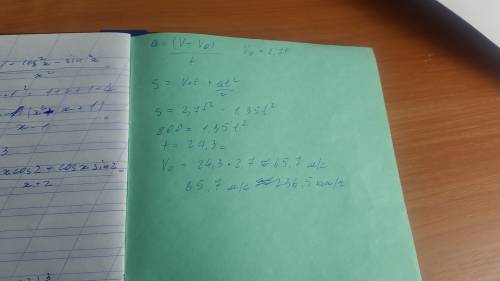 a = (V - V₀) / t    V₀ = 2,7t
S = V₀t + at²/2
S = 2,7t² - 1,35t²
800 = 1,35t²
t = 24,3
V₀ = 24,3 · 2,7 ≈ 65,7 м/с
65,7 м/с ≈ 236,5 км/ч
1 - cos²x - sin²x
x²
x - 1
3
xcos2 + cosxsin2
x + 2